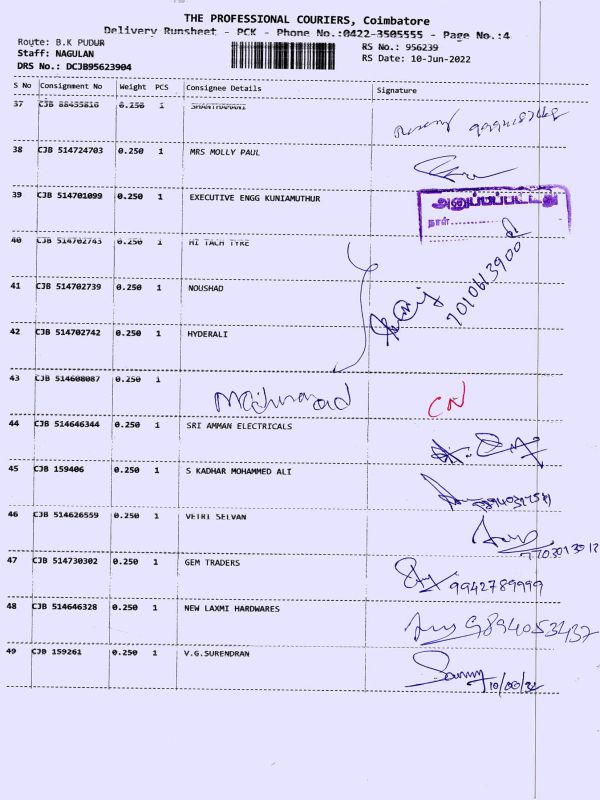 THE PROFESSIONAL COURIERS, Coimbatore
Delivery Runsheet - PCK - Phone No.:0422-3505555 - Page No.:4
Route: B.K PUDUR RS No.: 956239
Staff: NAGULAN RS Date: 10-Jun-2022
DRS No.: DCJB95623904
S No Consignment No Weight PCS Consignee Details Signature
37 CJB 88455816 0.250 1 SHANTHAMANI
38 CJB 514724703 0.250 1 MRS MOLLY PAUL
39 CJB 514701099 0.250 1 EXECUTIVE ENGG KUNIAMUTHUR
அனுப்பப்பட்டது
நாள்
40 CJB 514702743 0.250 1 HI TACH TYRE
41 CJB 514702739 0.250 1 NOUSHAD 7010613900
42 CJB 514702742 0.250 1 HYDERALI
43 CJB 514608087 0.250 1 CN
44 CJB 514646344 0.250 1 SRI AMMAN ELECTRICALS
45 CJB 159406 0.250 1 S KADHAR MOHAMMED ALI
46 CJB 514626559 0.250 1 VETRI SELVAN
47 CJB 514730302 0.250 1 GEM TRADERS 9942789999
48 CJB 514646328 0.250 1 NEW LAXMI HARDWARES 9894053437
49 CJB 159261 0.250 1 V.G.SURENDRAN